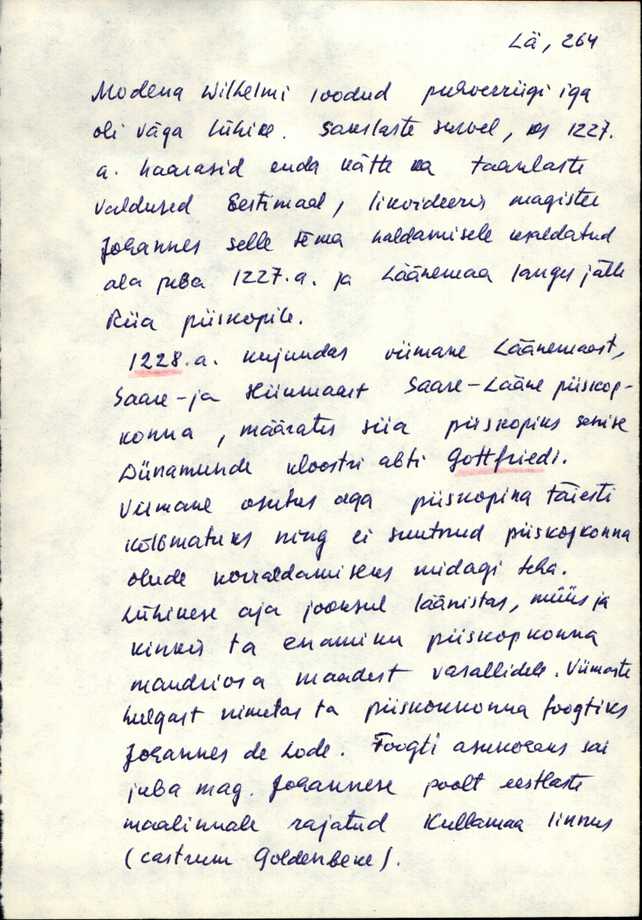 Lä, 264
Modena Wilhelmi loodud puhverriigi iga
oli väga lühike. Sakslaste survel, kes 1227.
a. haarasid enda kätte ka taanlaste
valdused Eestimaal, likvideeris magister
Johannes selle tema haldamisele usaldatud
ala juba 1227.a. ja Läänemaa langes jälle
Riia piiskopile.
1228.a. kujundas viimane Läänemaast,
Saare-ja Hiiumaast Saare-Lääne piiskop-
konna, määrates siia piiskopiks senise
Dünamünde kloostri abti Gottfriedi.
Viimane osutus aga piiskopina täiesti
kõlbmatuks ning ei suutnud piiskopkonna
olude korraldamiseks midagi teha.
Lühikese aja jooksul läänistas, müüs ja
kinkis ta enamiku piiskopkonna
mandriosa maadest vasallidele. Viimaste
hulgast nimetas ta piiskopkonna foogtiks
Johannes de Lode. Foogti asukohaks sai
juba mag. Johannese poolt eestlaste
maalinnale rajatud Kullamaa linnus
(castrum Goldenbeke).